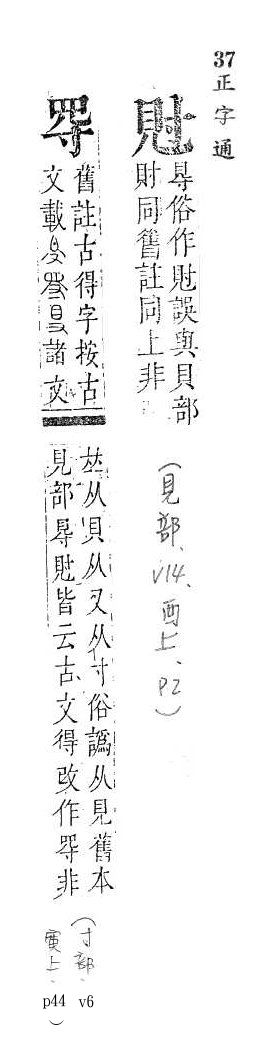 37 正字通
㝵俗作誤與貝部
財同舊註同上非
(見部、v14、酉上、p2)
舊註古得字按古
文載諸文
𠀤从貝从又从寸俗譌从見舊本
見部㝵皆云古文得改作非
(寸部、v6
寅上、p44)